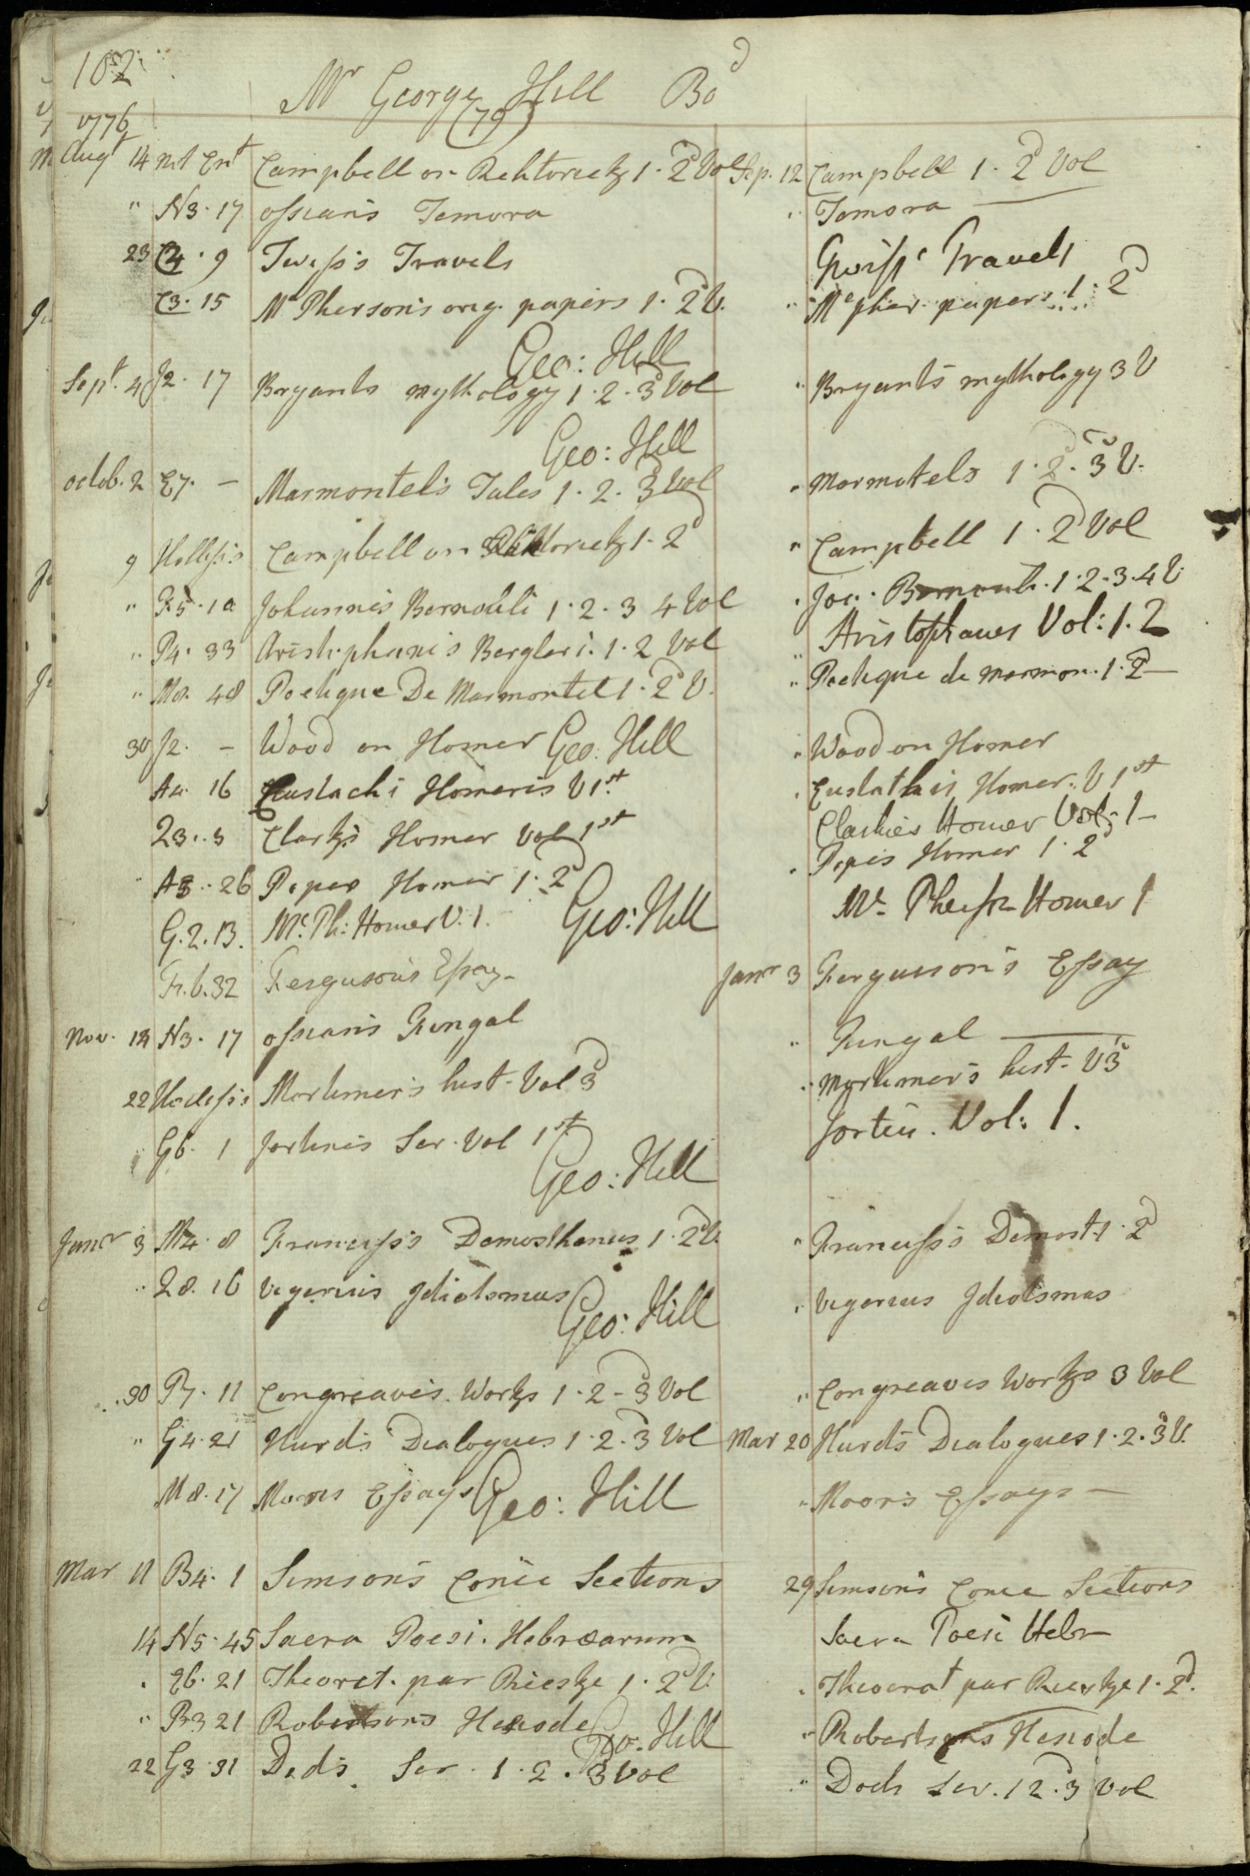 102
Mr George Hill Bod
(79)
1776
Augt 14 not Ent Campbell on Rehtorick 1. 2d Vol Sep. 12 Campbell 1. 2d Vol
" N3. 17 ossians Temora " Temora
23 C4. 9 Twiss's Travels Twiss's Travels
C3. 15 Mc Pherson's orig. papers 1. 2d V. " Mcpher. papers 1. 2d
Geo: Hill
Sept. 4 J2. 17 Bryants mythology 1. 2. 3d Vol " Bryants mythology 3 V
Geo: Hill
octob. 2 E7. - Marmontels Tales 1. 2. 3d Vol " Marmotels 1. 2. 3d V.
9 Holless's Campbell on Rehtorick 1. 2d " Campbell 1. 2d Vol
" F5. 10 Johannis Bernoulli 1. 2. 3 4 Vol " Joa. Bernouli. 1. 2. 3. 4 V.
" P4. 33 Aristophanis Bergleri. 1. 2 Vol " Aristophanes Vol: 1. 2
" Mo. 48 Poetique De Marmontel 1. 2d V. " Poetique de marmon. 1. 2d
30 J2. - Wood on Homer Geo: Hill " Wood on Homer
Aa. 16 Eustachi Homeris V 1st " Eustathis Homer. V 1st
23. 3 Clarks Homer Vol 1st Clarkies Homer Vol: 1
" A3. 26 Popes Homer 1. 2d " Popes Homer 1. 2d
G. 2. 13. Mc. Ph: Homer V. 1. Geo: Hill Mc. Phersn Homer 1
Fr. 6. 32 Fergusons Essay Janr 3 Fergusson's Essay
Nov. 12 N3. 17 ossians Fingal " Fingal
22 Holless's Mortimer's hist. Vol 3d " Mortimer's hist. V3d
" G6. 1 Jortins Ser. Vol 1st Jortin. Vol: 1.
Geo: Hill
Janr 3 M4. 8 Franciss's Demosthenes 1. 2d V. " Franciss's Demost. 1. 2d
" 28. 16 Vigerius Idiotsmus " Vigerius Idiotsmas
Geo: Hill
" 30 P7. 11 Congreave's Works 1. 2 - 3d Vol " Congreaves Works 3 Vol
" G4. 21 Hurd's Dialogues 1. 2. 3d Vol Mar 20 Hurd's Dialogues 1. 2. 3d V.
M8. 17 Moors Essays Geo: Hill " Moor's Essays
Mar 11 B4. 1 Simson's Conic Sections 29 Simson's Conic Sections
14 N5. 45 Sacra Poesi. Hebræarum Sacra Poesi Hebr
" 26. 21 Theocret. par Rieske 1. 2d V. " Theocrat par Rieske 1. 2d.
" P3 21 Robertsons Hesiode Geo: Hill " Robertsons Hesiode
22 G3. 31 Dods Ser. 1. 2. 3d Vol " Dods Ser. 1 2. 3 Vol